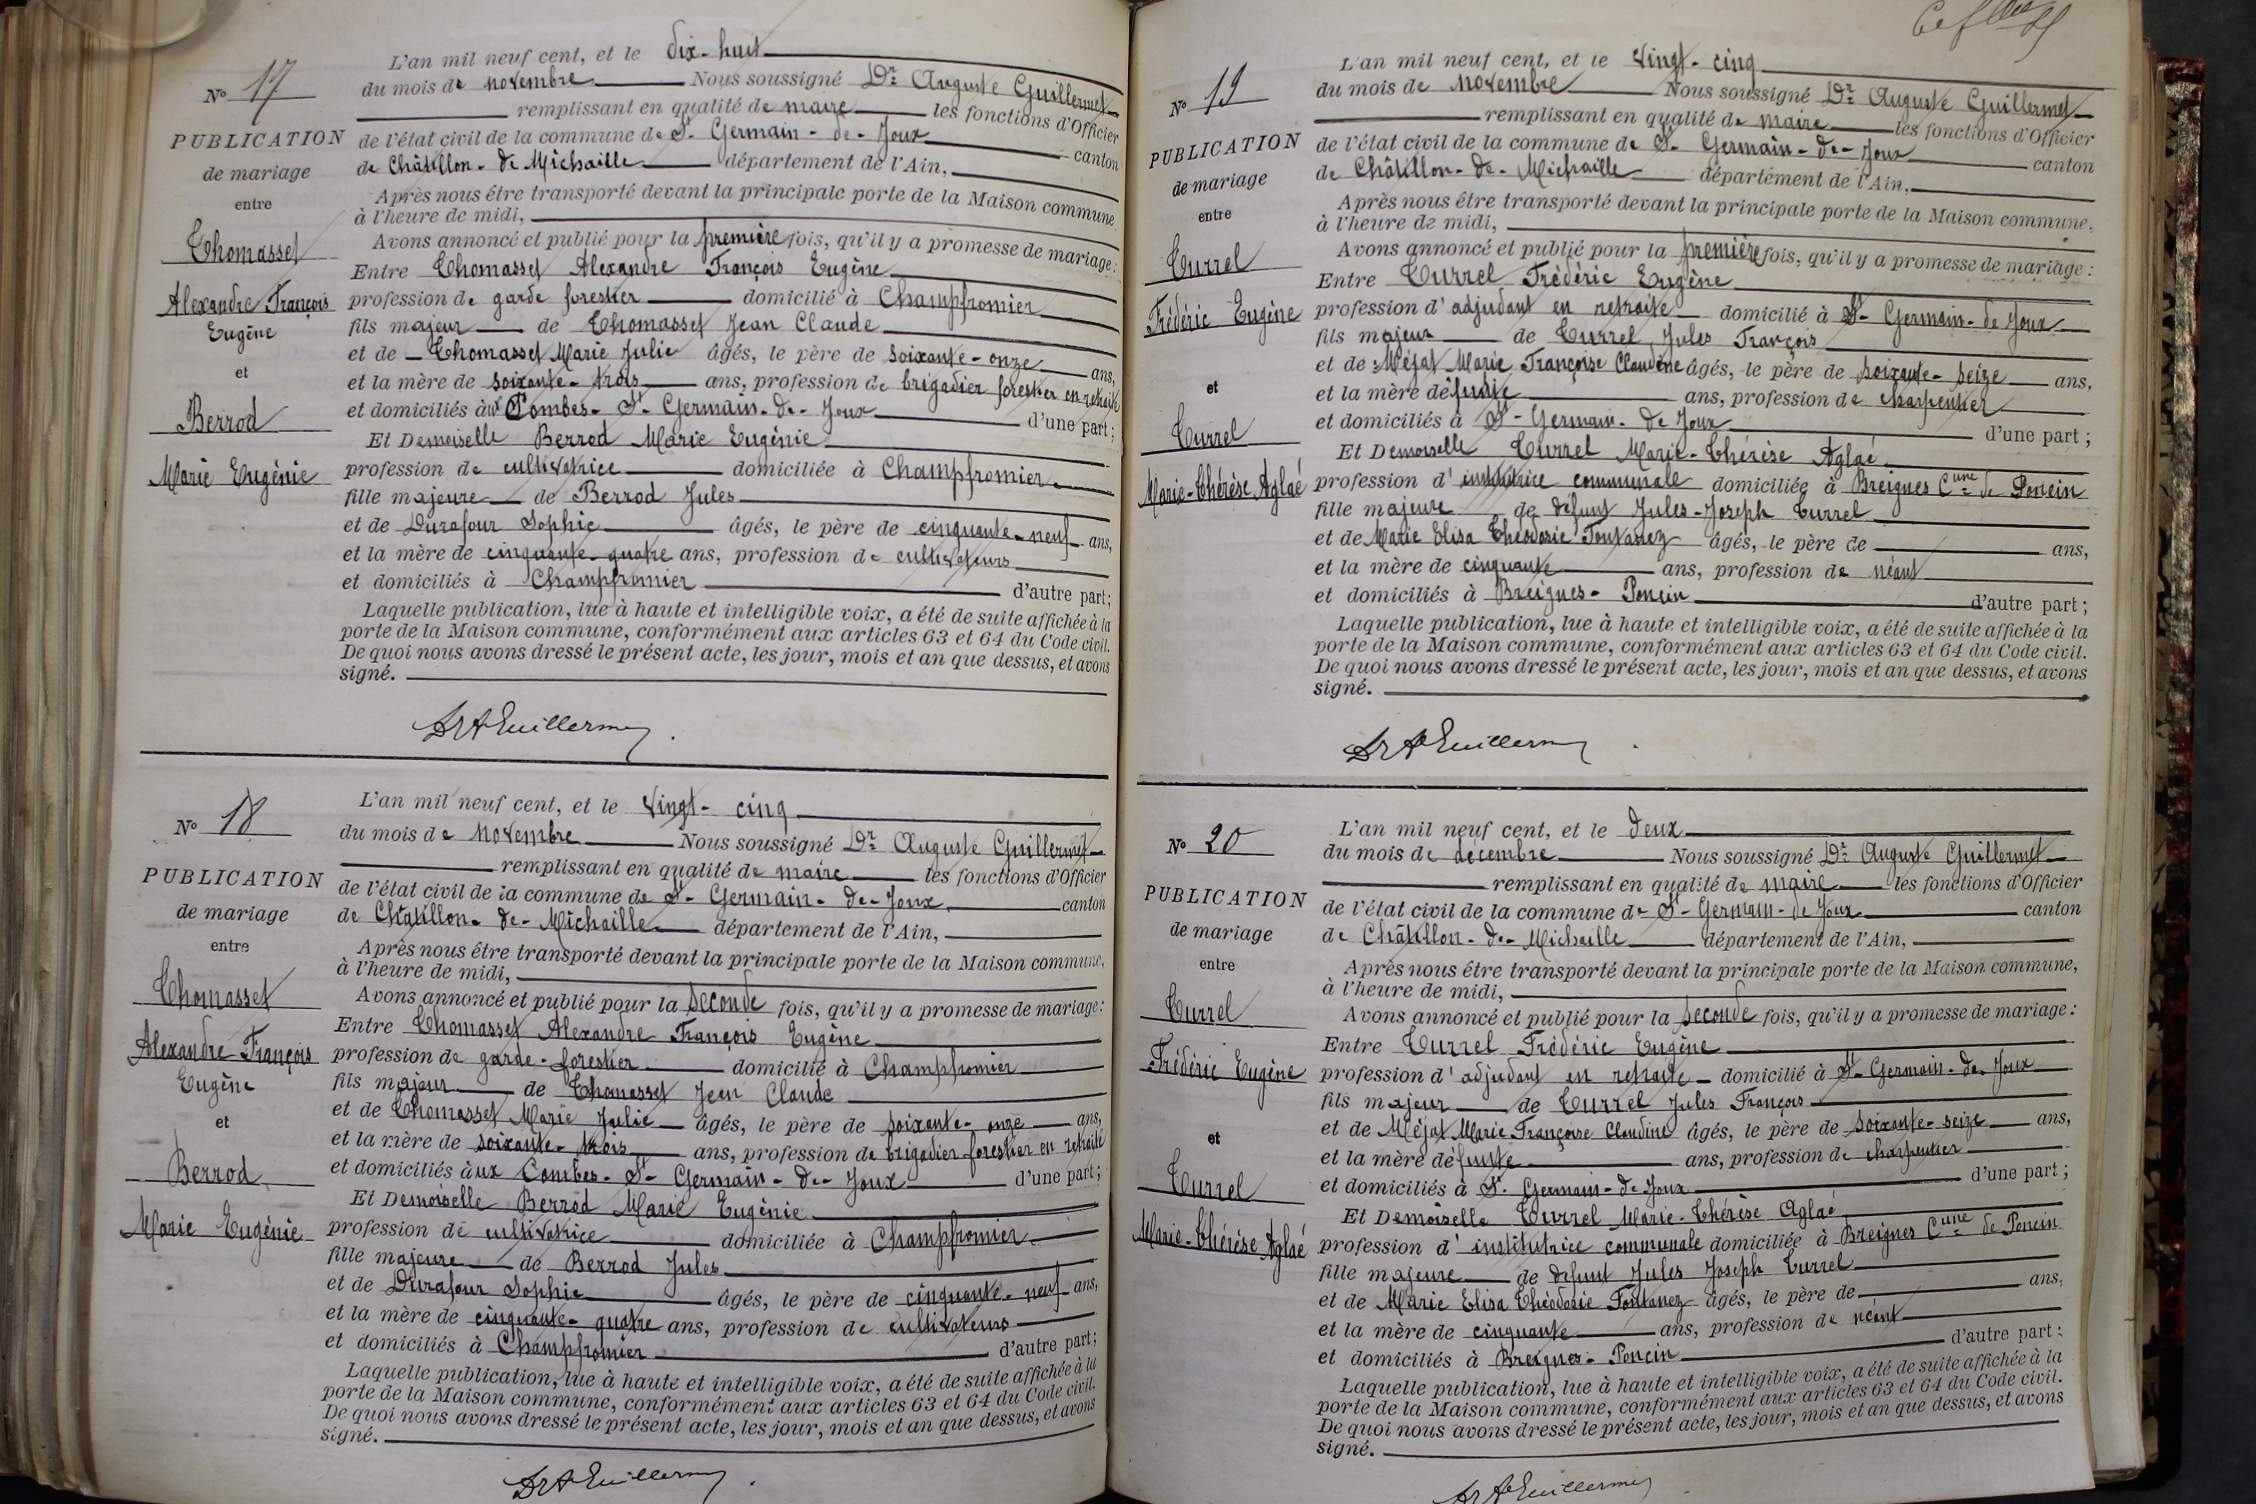 L'an mil neuf cent, et le dix-huit
N° 17
du mois de novembre Nous soussigné Dr. Auguste Guillermet
remplissant en qualité de maire les fonctions d'Officier
PUBLICATION
de l'état civil de la commune de St Germain-de-Joux canton
de mariage
de Châtillon-de-Michaille département de l'Ain,
entre
Après nous être transporté devant la principale porte de la Maison commune
à l'heure de midi,
Thomasset
Avons annoncé et publié pour la première fois, qu'il y a promesse de mariage:
Entre Thomasset Alexandre François Eugène
Alexandre François
profession de garde forestier domicilié à Champfromier
Eugène
fils majeur de Thomasset Jean Claude
et de Thomasset Marie Julie âgés, le père de soixante-onze ans,
et
et la mère de soixante-trois ans, profession de brigadier forestier en retraite
Berrod
et domiciliés aux Combes-St Germain-de-Joux d'une part;
Et Demoiselle Berrod Marie Eugénie
Marie Eugénie
profession de cultivatrice domiciliée à Champfromier
fille majeure de Berrod Jules
et de Durafour Sophie âgés, le père de cinquante-neuf ans,
et la mère de cinquante-quatre ans, profession de cultivateurs
et domiciliés à Champfromier d'autre part;
Laquelle publication, lue à haute et intelligible voix, a été de suite affichée à la
porte de la Maison commune, conformément aux articles 63 et 64 du Code civil.
De quoi nous avons dressé le présent acte, les jour, mois et an que dessus, et avons
signé.
Dr A Guillermet
L'an mil neuf cent, et le vingt-cinq
N° 18
du mois de novembre Nous soussigné Dr. Auguste Guillermet
remplissant en qualité de maire les fonctions d'Officier
PUBLICATION
de l'état civil de la commune de St-Germain-de-Joux canton
de mariage
de Châtillon-de-Michaille département de l'Ain,
entre
Après nous être transporté devant la principale porte de la Maison commune,
à l'heure de midi,
Thomasset
Avons annoncé et publié pour la seconde fois, qu'il y a promesse de mariage:
Entre Thomasset Alexandre François Eugène
Alexandre François
profession de garde-forestier domicilié à Champfromier
Eugène
fils majeur de Thomasset Jean Claude
et
et de Thomasset Marie Julie âgés, le père de soixante-onze ans,
et la mère de soixante-trois ans, profession de brigadier forestier en retraite
Berrod
et domiciliés aux Combes-St-Germain-de-Joux d'une part;
Et Demoiselle Berrod Marie Eugénie
Marie Eugénie
profession de cultivatrice domiciliée à Champfromier
fille majeure de Berrod Jules
et de Durafour Sophie âgés, le père de cinquante-neuf ans,
et la mère de cinquante-quatre ans, profession de cultivateurs
et domiciliés à Champfromier d'autre part;
Laquelle publication, lue à haute et intelligible voix, a été de suite affichée à la
porte de la Maison commune, conformément aux articles 63 et 64 du Code civil.
De quoi nous avons dressé le présent acte, les jour, mois et an que dessus, et avons
signé.
Dr A Guillermet
L'an mil neuf cent, et le vingt-cinq
N° 19
du mois de novembre Nous soussigné Dr. Auguste Guillermet
remplissant en qualité de maire les fonctions d'Officier
PUBLICATION
de l'état civil de la commune de St-Germain-de-Joux canton
de mariage
de Châtillon-de-Michaille département de l'Ain,
entre
Après nous être transporté devant la principale porte de la Maison commune,
à l'heure de midi,
Turrel
Avons annoncé et publié pour la première fois, qu'il y a promesse de mariage:
Entre Turrel Frédéric Eugène
Frédéric Eugène
profession d'adjudant en retraite domicilié à St-Germain-de Joux
fils majeur de Turrel Jules François
et
et de Méjat Marie Françoise Claudine âgés, le père de soixante-seize ans,
et la mère défunte ans, profession de charpentier
Turrel
et domiciliés à St-Germain-de Joux d'une part;
Et Demoiselle Turrel Marie-Thérèse Aglaé
Marie-Thérèse Aglaé
profession d'institutrice communale domiciliée à Breignes Cune de Poncin
fille majeure de défunt Jules-Joseph Turrel
et de Marie Elisa Théodorie Fontanez âgés, le père de ans,
et la mère de cinquante ans, profession de néant
et domiciliés à Breignes-Poncin d'autre part;
Laquelle publication, lue à haute et intelligible voix, a été de suite affichée à la
porte de la Maison commune, conformément aux articles 63 et 64 du Code civil.
De quoi nous avons dressé le présent acte, les jour, mois et an que dessus, et avons
signé.
Dr A Guillermet
L'an mil neuf cent, et le deux
N° 20
du mois de décembre Nous soussigné Dr. Auguste Guillermet
remplissant en qualité de maire les fonctions d'Officier
PUBLICATION
de l'état civil de la commune de St-Germain-de Joux canton
de mariage
de Châtillon-de-Michaille département de l'Ain,
entre
Après nous être transporté devant la principale porte de la Maison commune,
à l'heure de midi,
Turrel
Avons annoncé et publié pour la seconde fois, qu'il y a promesse de mariage:
Entre Turrel Frédéric Eugène
Frédéric Eugène
profession d'adjudant en retraite domicilié à St-Germain-de Joux
fils majeur de Turrel Jules François
et
et de Méjat Marie Françoise Claudine âgés, le père de soixante-seize ans,
et la mère défunte ans, profession de charpentier
Turrel
et domiciliés à St-Germain-de Joux d'une part;
Et Demoiselle Turrel Marie-Thérèse Aglaé
Marie-Thérèse Aglaé
profession d'institutrice communale domiciliée à Breignes Cune de Poncin
fille majeure de défunt Jules Joseph Turrel
et de Marie Elisa Théodorie Fontanez âgés, le père de ans,
et la mère de cinquante ans, profession de néant
et domiciliés à Breignes-Poncin d'autre part;
Laquelle publication, lue à haute et intelligible voix, a été de suite affichée à la
porte de la Maison commune, conformément aux articles 63 et 64 du Code civil.
De quoi nous avons dressé le présent acte, les jour, mois et an que dessus, et avons
signé.
Dr A Guillermet